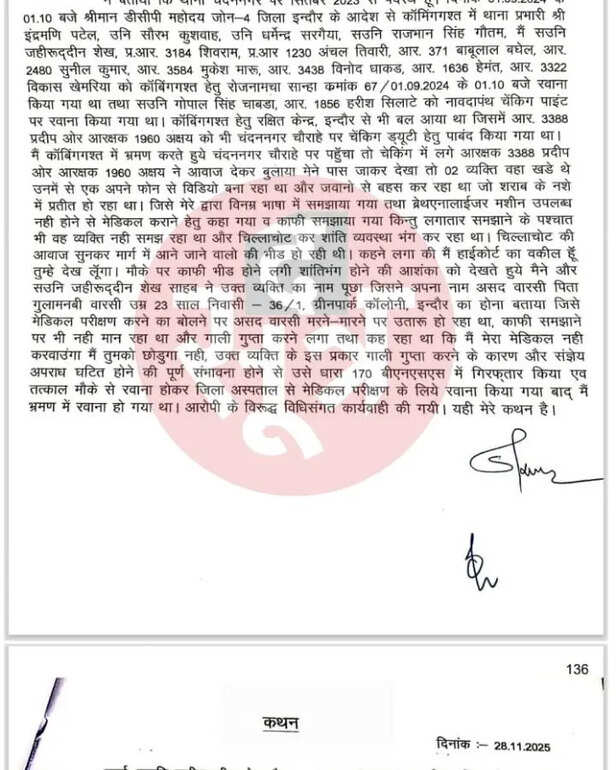 01.10 बजे श्रीमान डीसीपी महोदय जोन–4 जिला इन्दौर के आदेश से कॉमिंगगश्त में थाना प्रभारी श्री
इंद्रमणि पटेल, उनि सौरभ कुशवाह, उनि धर्मेन्द्र सरगैया, सउनि राजभान सिंह गौतम, मैं सउनि
जहीरूद्दीन शेख, प्र.आर. 3184 शिवराम, प्र.आर 1230 अंचल तिवारी, आर. 371 बाबूलाल बघेल, आर.
2480 सुनील कुमार, आर. 3584 मुकेश मारू, आर. 3438 विनोद धाकड, आर. 1636 हेमंत, आर. 3322
विकास खेमरिया को कॉबिंगगश्त हेतु रोजनामचा सान्हा कमांक 67/01.09.2024 के 01.10 बजे रवाना
किया गया था तथा सउनि गोपाल सिंह चाबडा, आर. 1856 हरीश सिलाटे को नावदापंथ चेंकिग पाइंट
पर रवाना किया गया था। कॉबिंगगश्त हेतु रक्षित केन्द्र, इन्दौर से भी बल आया था जिसमें आर. 3388
प्रदीप ओर आरक्षक 1960 अक्षय को भी चंदननगर चौराहे पर चेंकिग ड्यूटी हेतु पाबंद किया गया था।
मैं कॉबिंगगश्त में भ्रमण करते हुये चंदननगर चौराहे पर पहुँचा तो चेकिग में लगे आरक्षक 3388 प्रदीप
ओर आरक्षक 1960 अक्षय ने आवाज देकर बुलाया मेने पास जाकर देखा तो 02 व्यक्ति वहा खडे थे
उनमें से एक अपने फोन से विडियो बना रहा था और जवानो से बहस कर रहा था जो शराब के नशे
में प्रतीत हो रहा था। जिसे मेरे द्वारा विनम्र भाषा में समझाया गया तथा ब्रेथएनालाईजर मशीन उपलब्ध
नही होने से मेडिकल कराने हेतु कहा गया व काफी समझाया गया किन्तु लगातार समझाने के पश्चात
भी वह व्यक्ति नही समझ रहा था और चिल्लाचोट कर शांति व्यवस्था भंग कर रहा था। चिल्लाचोट की
आवाज सुनकर मार्ग में आने जाने वालो की भीड हो रही थी। कहने लगा की मैं हाईकोर्ट का वकील हूँ
तुम्हे देख लूंगा। मौके पर काफी भीड होने लगी शांतिभंग होने की आशंका को देखते हुये मैंने और
सउनि जहीरूद्दीन शेख साहब ने उक्त व्यक्ति का नाम पूछा जिसने अपना नाम असद वारसी पिता
गुलामनबी वारसी उम्र 23 साल निवासी – 36/1, ग्रीनपार्क कॉलोनी, इन्दौर का होना बताया जिसे
मेडिकल परीक्षण करने का बोलने पर असद वारसी मरने–मारने पर उतारू हो रहा था, काफी समझाने
पर भी नही मान रहा था और गाली गुप्ता करने लगा तथा कह रहा था कि मैं मेरा मेडिकल नही
करवाउंगा मैं तुमको छोडुगा नही, उक्त व्यक्ति के इस प्रकार गाली गुप्ता करने के कारण और संज्ञेय
अपराध घटित होने की पूर्ण संभावना होने से उसे धारा 170 बीएनएसएस में गिरफ्तार किया एव
तत्काल मौके से रवाना होकर जिला अस्पताल से मेडिकल परीक्षण के लिये रवाना किया गया बाद् मैं
भ्रमण में रवाना हो गया था। आरोपी के विरूद्ध विधिसंगत कार्यवाही की गयी। यही मेरे कथन है।
136
कथन
दिनांक :– 28.11.2025